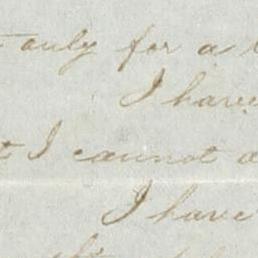 only for a
I have
I cannot
I have